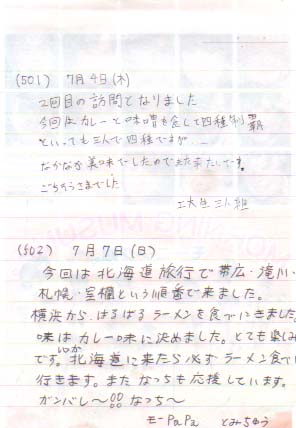 (501) 7月4日(木)
2回目の訪問となりました
今回はカレーと味噌を食して四種制覇
といっても三人で四種ですが…
なかなか美味でしたのでまた来たいです。
ごちそうさまでした
工大生三人組
(502) 7月7日(日)
今回は北海道旅行で帯広・滝川・
札幌・室蘭という順番で来ました。
横浜から、はるばるラーメンを食べにきました
味はカレー味に決めました。とても楽しみ
です。北海道に来たら必ずラーメン食べに
行きます。また なっちも応援しています。
ガンバレ〜!!なっち〜
モーPaPa とみちゅう